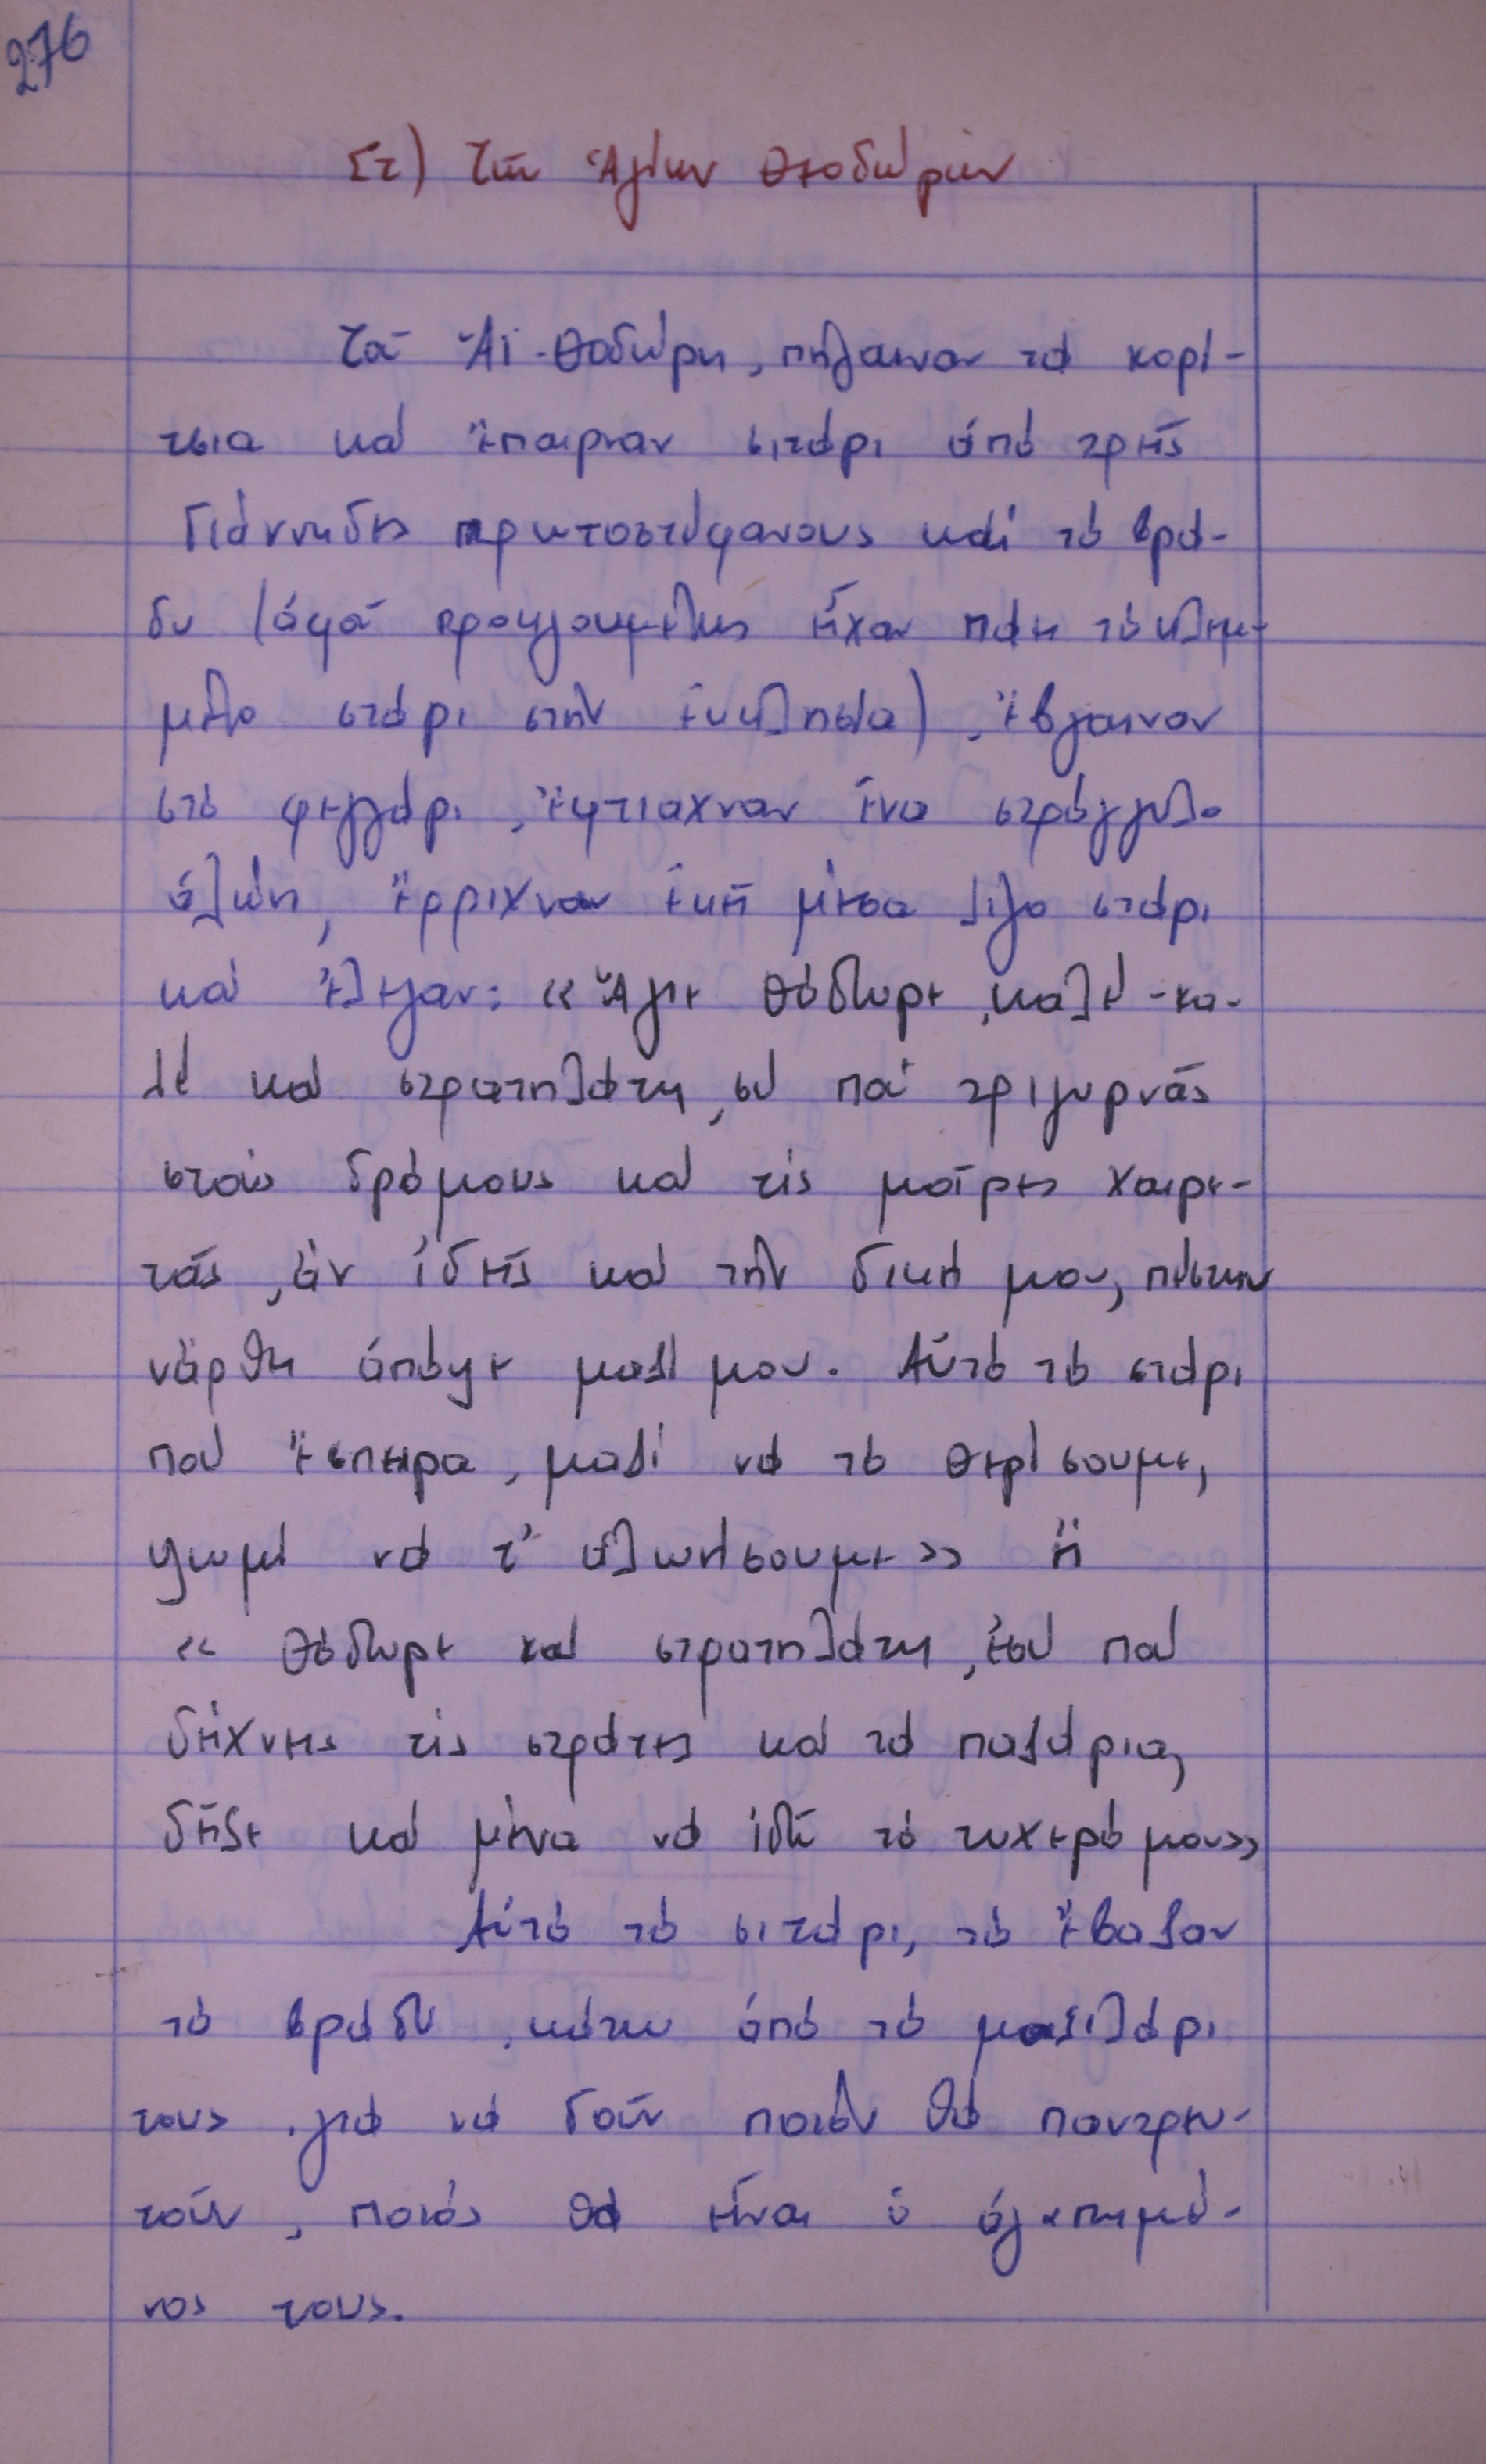 276
Στ) Τῶν Ἁγίων Θεοδώρων
Τοῦ Ἁϊ-Θοδώρη, πήγαιναν τά κορί-
τσια καί ἔπαιρναν σιτάρι ἀπό τρεῖς
Γιάννηδες πρωτοστέφανους καί τό βρά-
δυ (ἀφοῦ προηγουμένως εἶχαν πάει τό κλεμ-
μένο στάρι στήν ἐκκλησία), ἔβγαιναν
στό φεγγάρι, ἔφτιαχναν ἕνα στρόγγυλο
ἁλώνι, ἔρριχναν ἐκεῖ μέσα λίγο στάρι
καί ἔλεγαν: «Ἅγιε Θόδωρε, καλέ-κα-
λέ καί στρατηλάτη, σύ πού τριγυρνᾶς
στούς δρόμους καί τίς μοῖρες χαιρε-
τᾶς, ἄν ἰδῆς καί τήν δική μου, πέστην
νἄρθη ἀπόψε μαζί μου. Αὐτό τό στάρι
πού ἔσπειρα, μαζί νά τό θερίσουμε,
ψωμί νά τ' ἁλωνίσουμε» ἤ
«Θόδωρε καί στρατηλάτη, ἐσύ πού
δείχνεις τίς στράτες καί τά παζάρια,
δεῖξε καί μένα νά ἰδῶ τό τυχερό μου»
Αὐτό τό σιτάρι, τό ἔβαζαν
τό βράδυ, κάτω ἀπό τό μαξιλάρι
τους, γιά νά δοῦν ποιόν θά παντρευ-
τοῦν, ποιός θά εἶναι ὁ ἀγαπημέ-
νος τους.